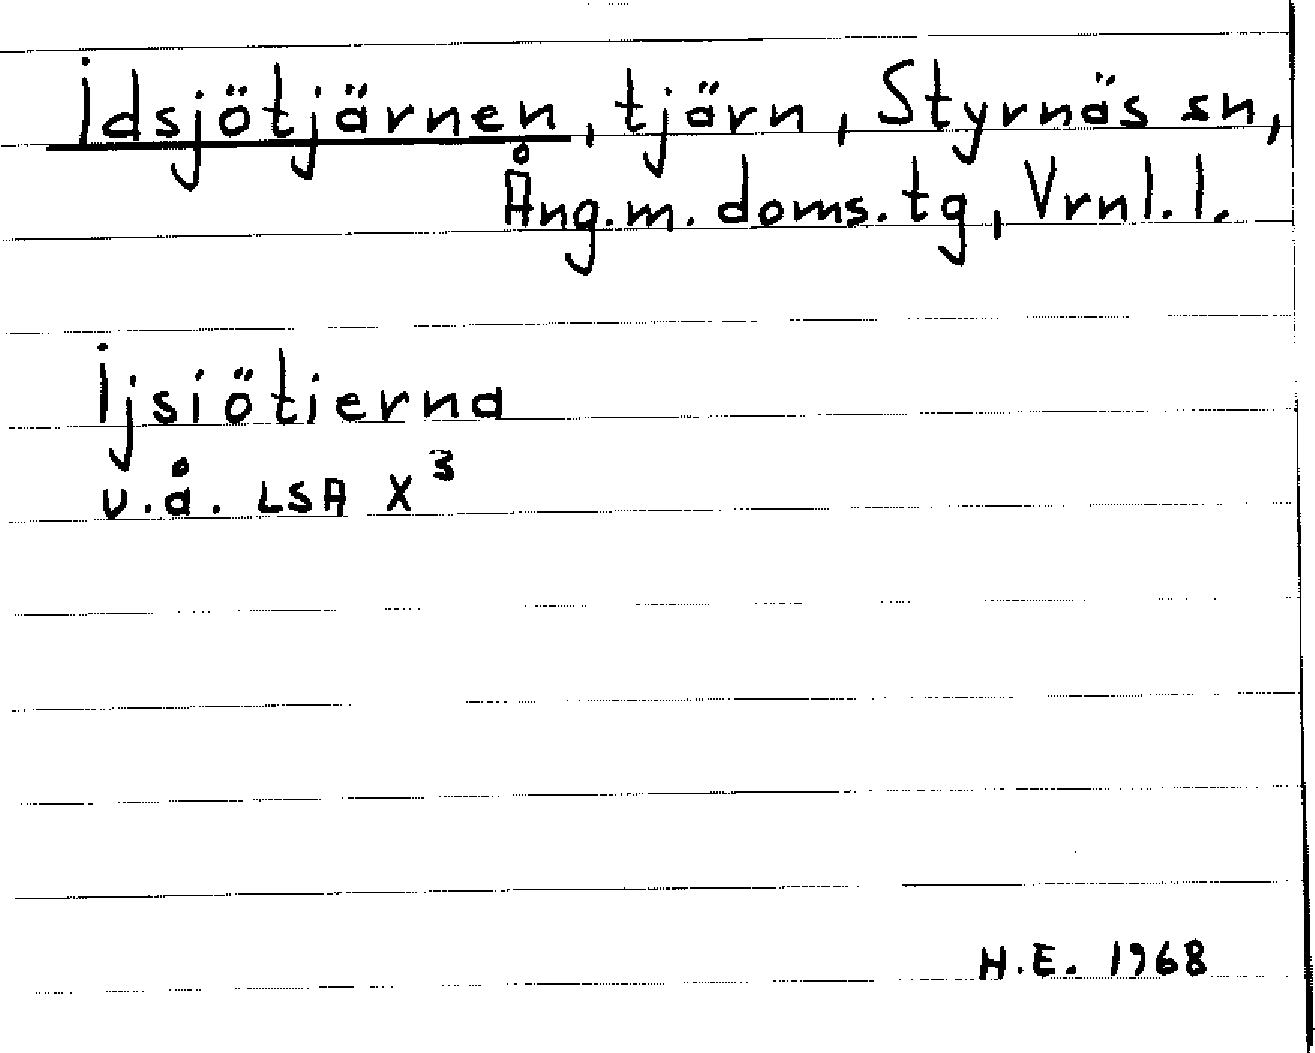 Idsjötjärnen, tjärn, Styrnäs sn,
Ång.m. doms.tg, Vrnl.l.
Ijsiötierna
u.å. LSA X³
H.E. 1968